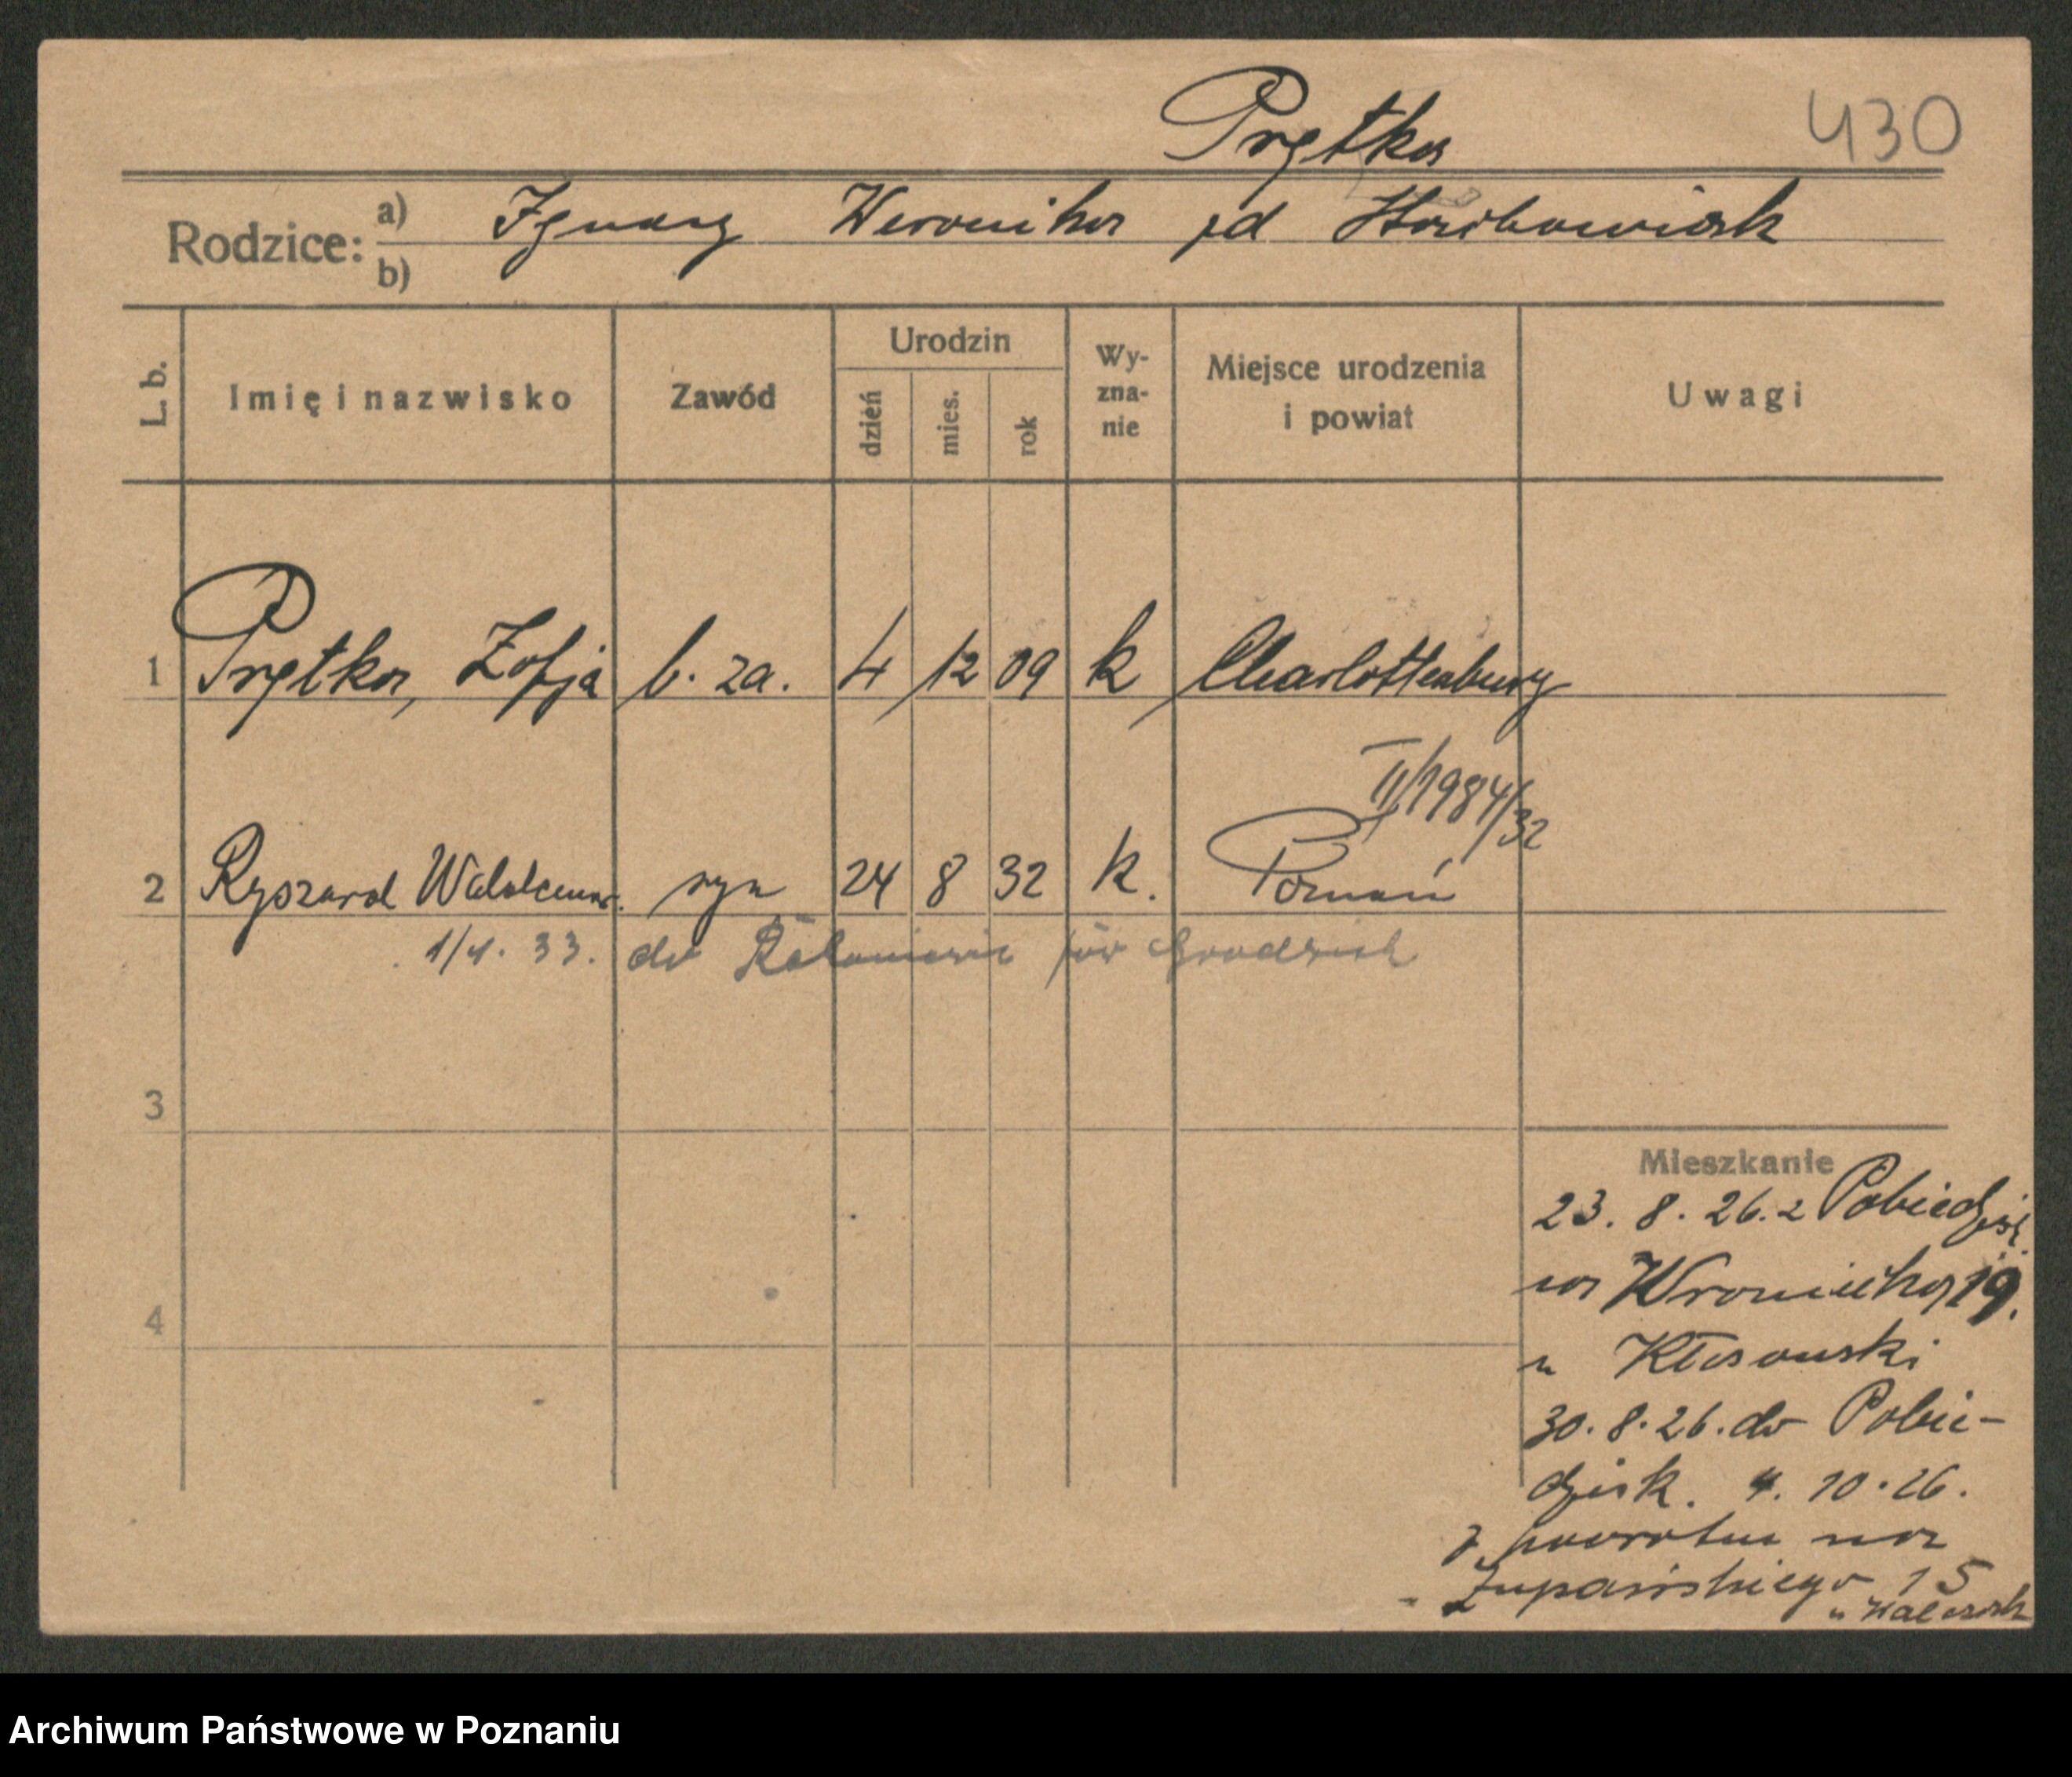 Prętka
430
Rodzice: a) Ignacy Weronika zd
b)
L. b.
Imię i nazwisko
Zawód
Urodzin
dzień
mies.
rok
Wy-
zna-
nie
Miejsce urodzenia
i powiat
Uwagi
1 Prętka, Zofja b. za. 4 12 09 k Charlottenburg
II/1984/32
2 Ryszard Waldemar. syn 24 8 32 k. Poznań
1/4. 33. do Rakoniewic pow Grodzisk
3
4
Mieszkanie
23. 8. 26. z Pobiedzisk
na Wroniecka 19.
u Kłosowski
30. 8. 26. do Pobie-
dzisk. 4. 10. 26.
z powrotem na
Żupańskiego 15
u
Archiwum Państwowe w Poznaniu